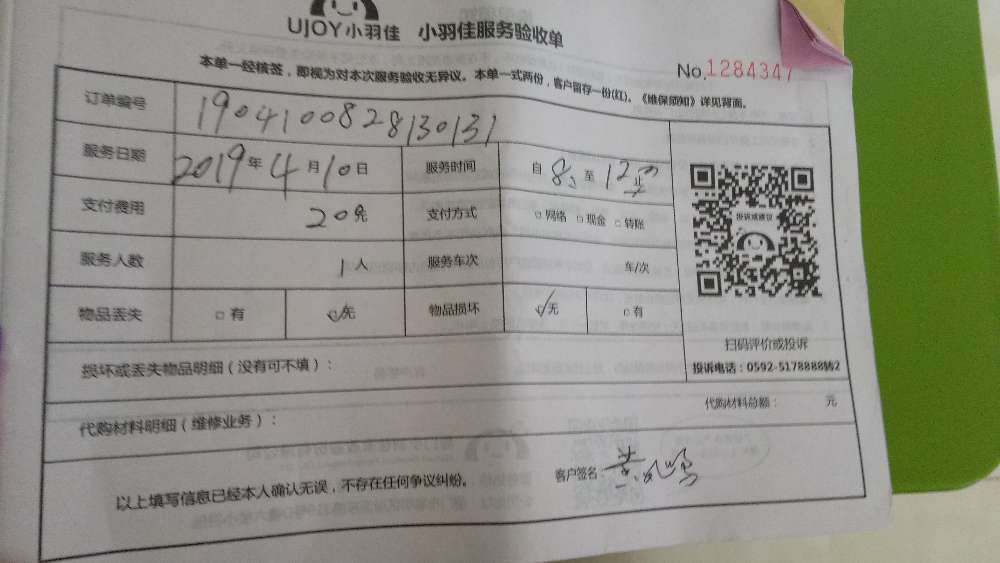 UJOY小羽佳 小羽佳服务验收单
No.1284347
本单一经核签，即视为对本次服务验收无异议。本单一式两份，客户留存一份(红)。《维保须知》详见背面。
订单编号 1904100828130131
服务日期 2019年4月10日 服务时间 自8:至12止
支付费用 20元 支付方式 □网络 □现金 □转账
服务人数 1人 服务车次 车/次
物品丢失 □有 无 物品损坏 无 □有
投诉或建议
扫码评价或投诉
投诉电话：0592-5178888转2
损坏或丢失物品明细（没有可不填）：
代购材料明细（维修业务）：
代购材料总额： 元
以上填写信息已经本人确认无误，不存在任何争议纠纷。
客户签名：黄